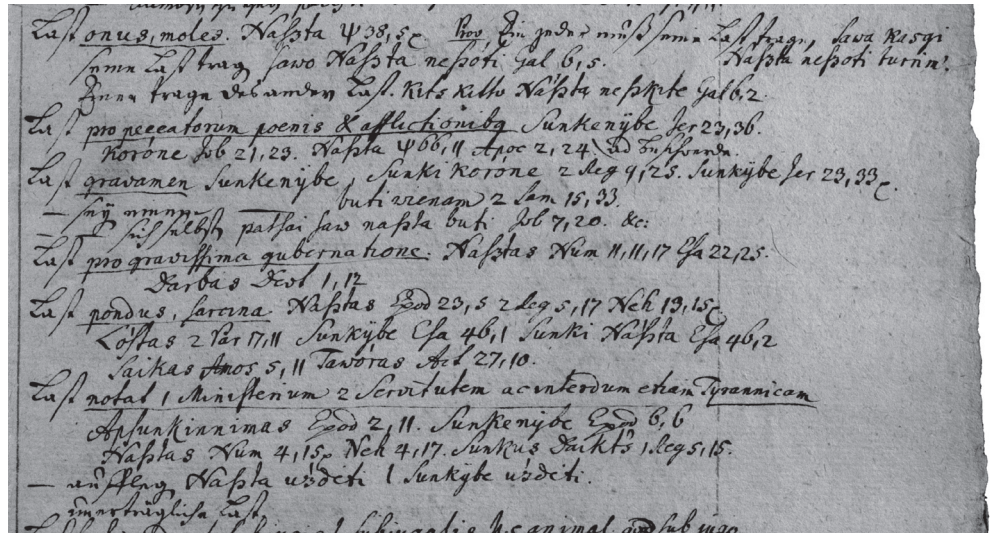 Last onus, moles. Naßta Ψ 38, 5 Prov Ein jeder muß seine Last tragen, Sawa kasgi
seine Last trag Sawo Naßta neßoti Gal 6, 5. Naßta neßoti turim.
Einer trage des andern Last. Kits kitto Naßtą neßkite Gal 6, 2
Last pro peccatorum poenis & afflictionibq Sunkenÿbe Jer 23, 36.
Korone Job 21, 23. Naßta Ψ 66, 11 Apoc 2, 24 ad
Last gravamen Sunkenÿbe, Sunki Korone 2 Reg 9, 25. Sunkÿbe Jer 23, 33
— buti wienam 2 Sam 15, 33.
— sich selbst patsai saw naßta buti Job 7, 20. &c:
Last pro gravissima gubernatione. Naßtas Num 11, 11, 17 Esa 22, 25.
Darbas Deut 1, 12
Last pondus, sarcina Naßtas Exod 23, 5 2 Reg 5, 17 Neh 13, 15
Loßtas 2 Par 17, 11 Sunkÿbe Esa 46, 1 Sunki Naßta Esa 46, 2
Saikas Amos 5, 11 Taworas Act 27, 10.
Last notat 1 Ministerium 2 Servitutem ac interdum etiam Tyrannicam
Apsunkinnimas Exod 2, 11. Sunkenÿbe Exod 6, 6
Naßtas Num 4, 15 Neh 4, 17. Sunkus Daikts 1 Reg 5, 15.
— aufleg Naßta uzdeti l Sunkÿbe uzdeti.
unerträgliche Last
animal sub jugo